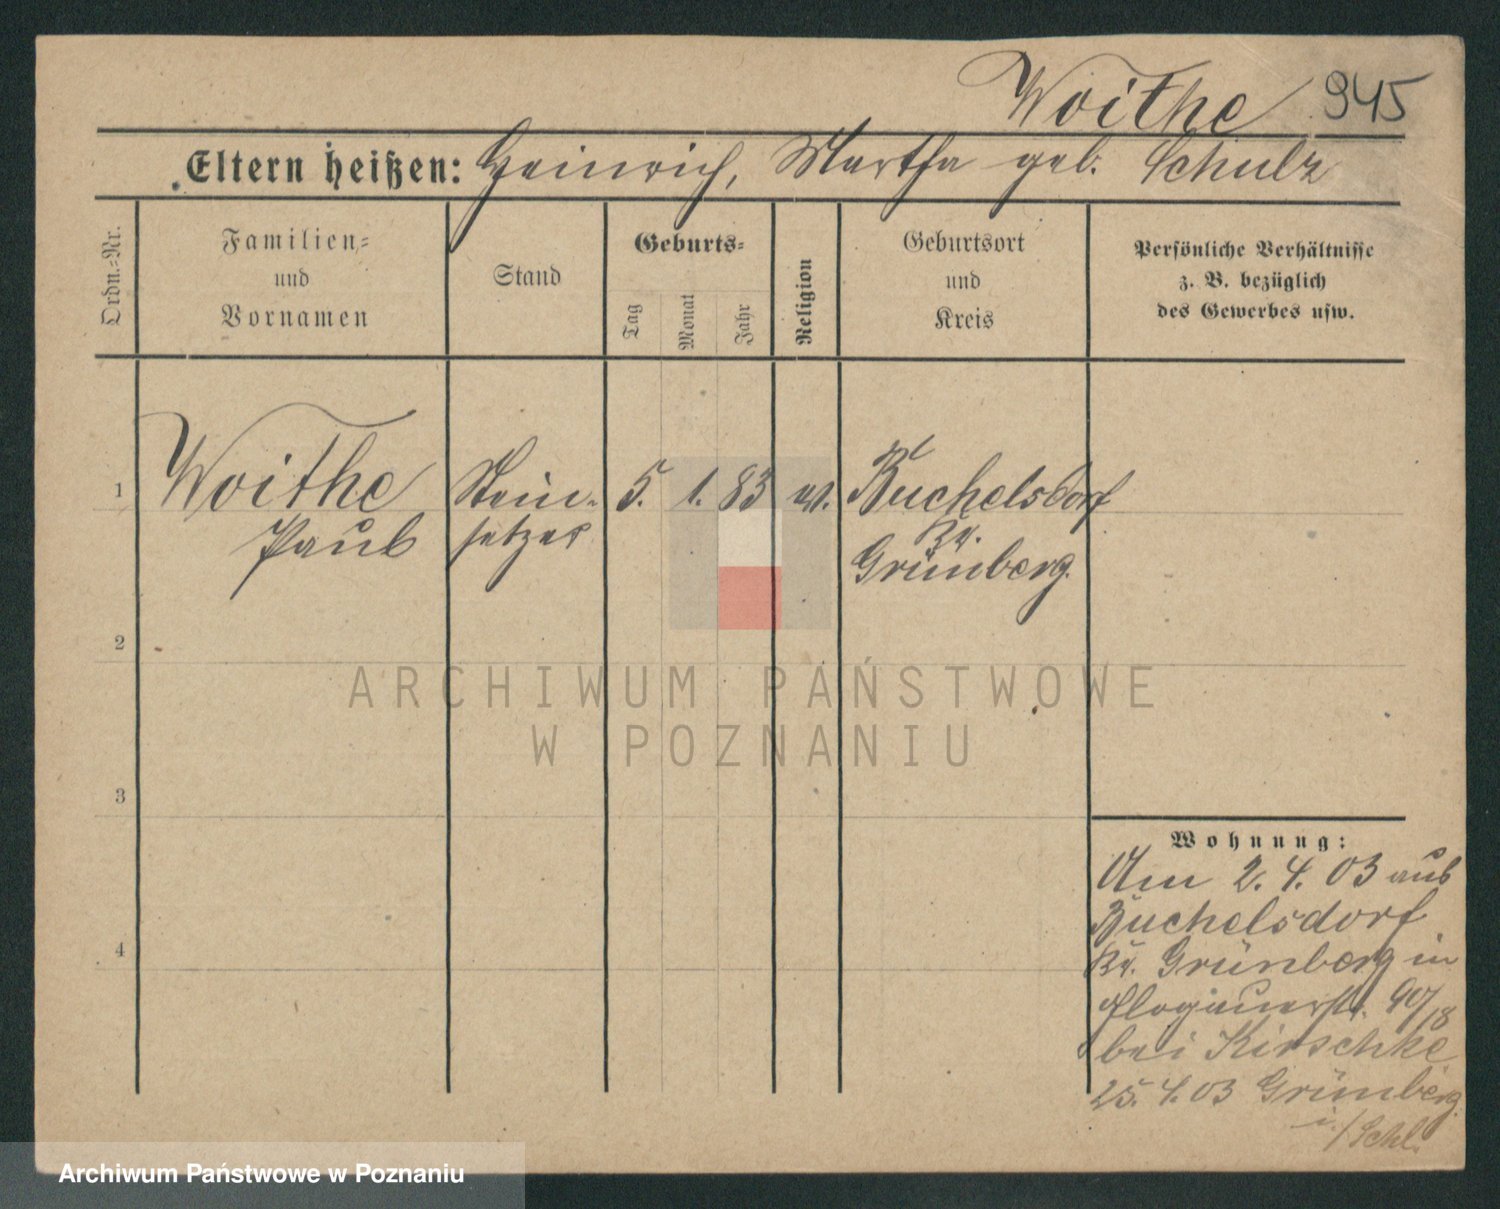 Woithe 945
Eltern heißen: Heinrich, Martha geb. Schulz
Ordn.-Nr.
Familien-
und
Vornamen
Stand
Geburts-
Tag
Monat
Jahr
Religion
Geburtsort
und
Kreis
Persönliche Verhältnisse
z. B. bezüglich
des Gewerbes usw.
1 Woithe Stein- 5. 1. 83 ev. Buchelsdorf
Paul setzer Kr.
Grünberg.
2
ARCHIWUM PAŃSTWOWE
W POZNANIU
3
Wohnung:
Am 2. 4. 03 aus
Buchelsdorf
4
Kr. Grünberg in
Glogauerstr. 90/18
bei Kirschke
25. 4. 03 Grünberg
i/Schl.
Archiwum Państwowe w Poznaniu